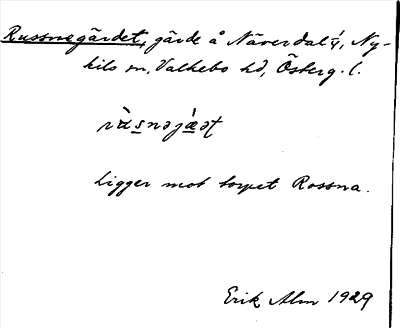 Russnegärdet, gärde å Näverdal 4/1, Ny-
kils sn, Valkebo hd, Österg. l.
Ligger mot torpet Rossna.
Erik Alm 1929